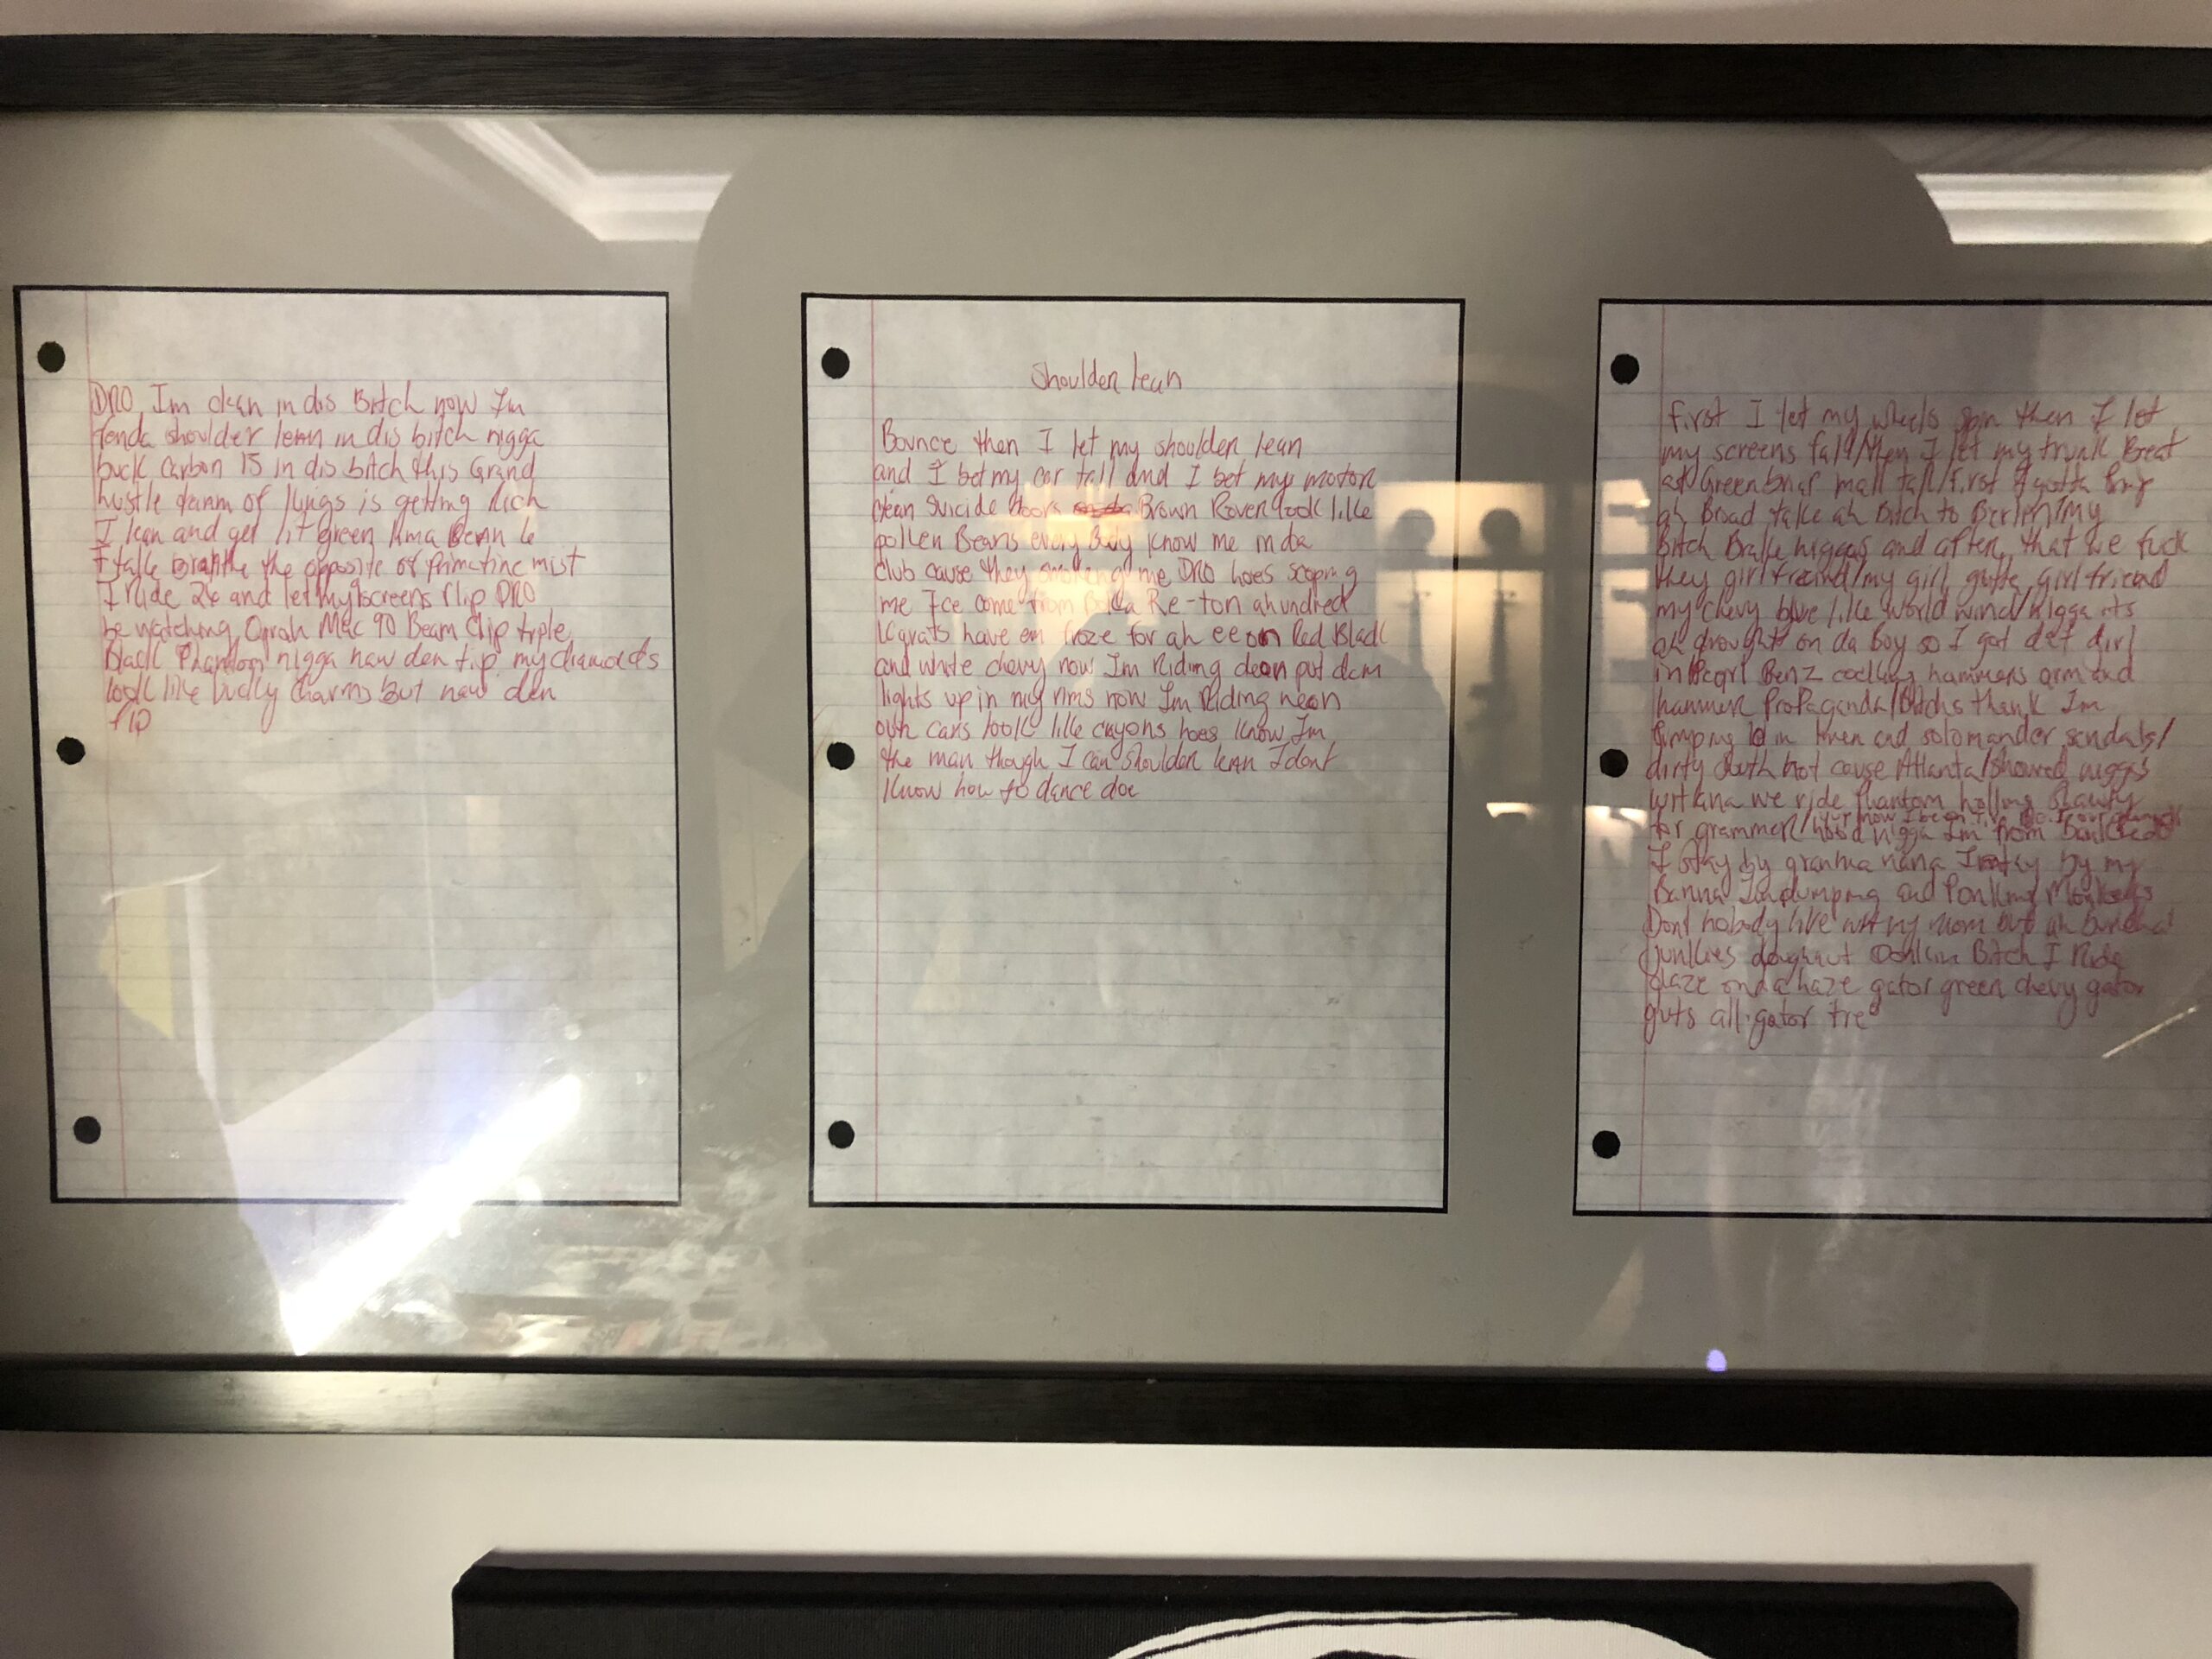 DRO Im clean in dis Bitch now Im
shoulder lean in dis bitch nigga
buck carbon 15 in dis bitch this Grand
hustle of kings is getting Rich
I lean and get lit green
I talk the opposite of mist
I Ride 26 and let my screens flip DRO
be watching Oprah Mac 90 Beam Clip triple
Black Phantom nigga naw den tip my diamonds
look like lucky charms But naw den
flip
Shoulder Lean
Bounce then I let my shoulder lean
and I bet my car tall and I bet my motor
clean Suicide doors Brown Rover look like
pollen Beans every Body know me in da
club cause they smokeng me DRO hoes scoping
me Ice come from Re-ton ahundred
kgrats have em froze for ah eeon Red Black
and white chevy now Im Riding deon put dem
lights up in my rims now Im Riding neon
our cars look like crayons hoes Know Im
the man though I can shoulder lean I dont
Know how to dance doe
first I let my wheels spin then I let
my screens fall/then I let my trunk Beat
at Greenbriar mall tall/first I gotta
ah Broad take ah Bitch to Berlin/my
Bitch Brake niggas and after that we fuck
they girlfreind/my girl gutta girl friend
my chevy blue like world wind/nigga its
ah drought on da boy so I got det girl
in Pearl Benz cocking hammers arm and
hammer Propaganda/Bitchs thank Im
pimping in linen and solomander sandals/
dirty South hot cause Atlanta/ niggas
we ride phantom holling Shawty
for grammer/hood nigga Im from Bankhead
I stay by granma nana I stay by my
Banna Im dumping and
Dont nobody live my room but ah buncha
junkies doughnut Bitch I Ride
glaze onda haze gator green chevy gator
guts alligator tre